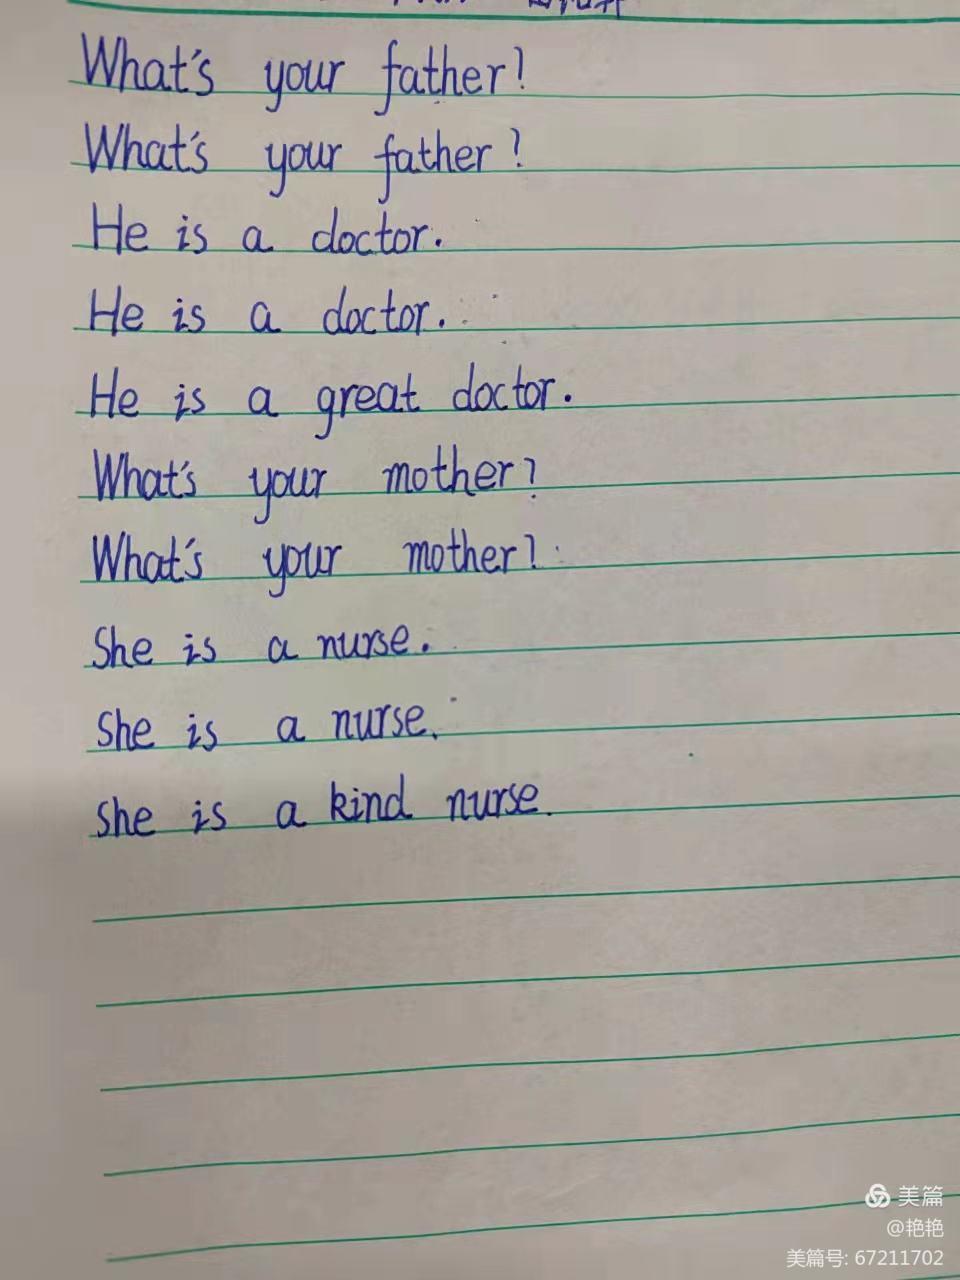 What's your father?
What's your father?
He is a doctor.
He is a doctor.
He is a great doctor.
What's your mother?
What's your mother?
She is a nurse.
She is a nurse.
She is a kind nurse.
美篇
@艳艳
美篇号: 67211702